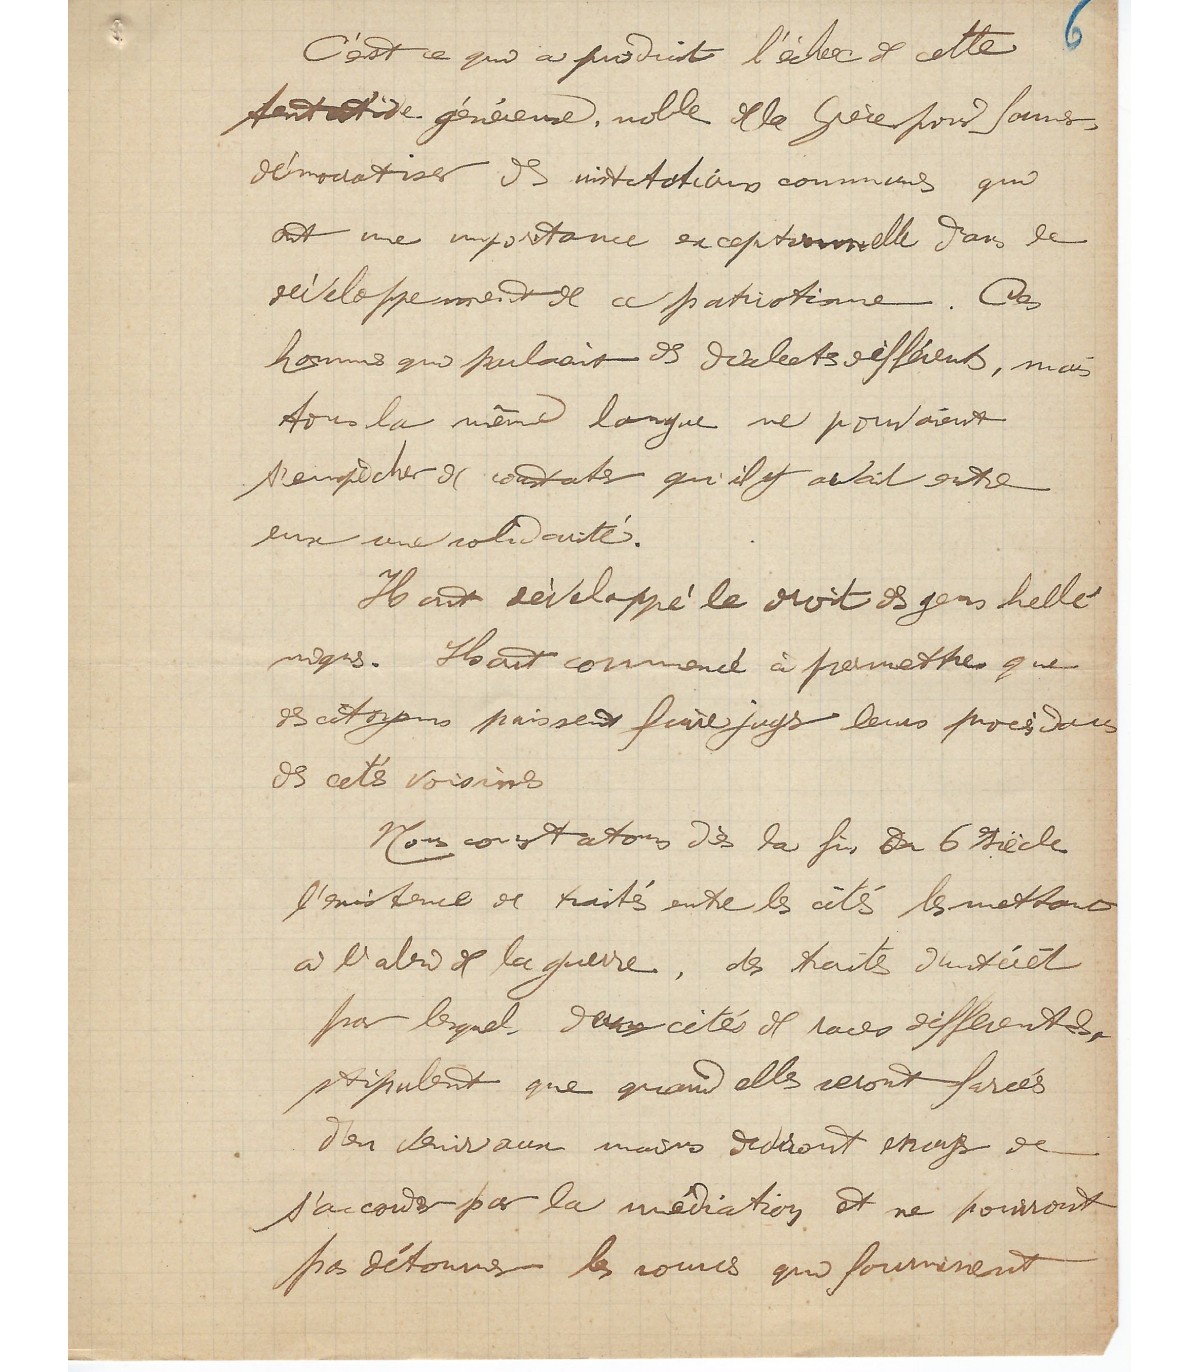 6
C'est ce qui a produit l'échec de cette
tentative généreuse, noble de la Grèce pour
démocratiser des institutions communes qui
ont une importance exceptionnelle dans le
développement de ce patriotisme. Ces
hommes qui parlaient des dialectes différents, mais
tous la même langue ne pouvaient
s'empêcher de constater qu'il y avait entre
eux une solidarité.
Ils ont développé le droit des gens hellé
niques. Ils ont commencé à permettre que
des citoyens puissent faire juger leurs procès dans
des cités voisines
Nous constatons dès la fin du 6e siècle
l'existence de traités entre les cités les mettant
à l'abri de la guerre, des traités d'intérêt
par lequel, deux cités de races différentes,
stipulent que quand elles seront forcés
d'en venir aux mains devront essayer de
s'accorder par la médiation et ne pourront
pas détourner les sources qui fournissent